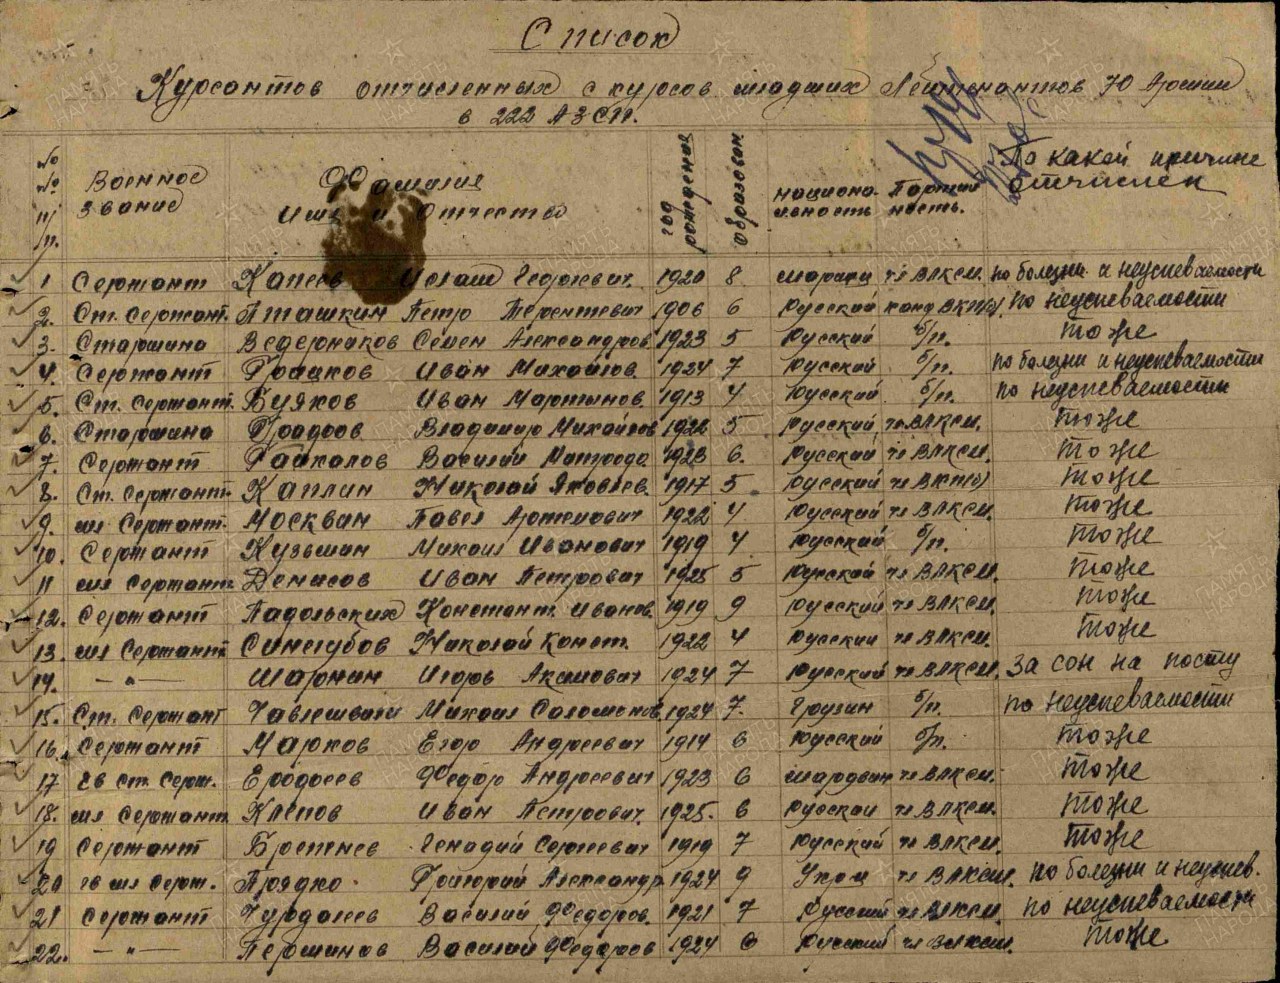 Список
Курсантов отчисленных с курсов младших Лейтенантов 70 Армии
в 222 АЗСП.
№ № п/п. Военное звание Фамилия Имя и Отчество год рождения образован. национальность Партийность. По какой причине отчислен
1 Сержант Георгиевич 1920 8 чл ВЛКСМ по болезни и неуспеваемости
2. Ст. Сержант. Пташкин Петр Терентевич 1906 6 Русский канд ВКП(б) по неуспеваемости
3. Старшина Ведерников Семен Александров. 1923 5 Русский б/п. тоже
4. Сержант Иван Михайлов. 1924 7 Русский б/п. по болезни и неуспеваемости
5. Ст. Сержант. Буяков Иван Мартынов. 1913 4 Русский б/п. по неуспеваемости
6. Старшина Владимир Михайлов 1922 5 Русский чл ВЛКСМ. тоже
7. Сержант Василий 1923 6. Русский чл ВЛКСМ. тоже
8. Ст. Сержант. Каплин Николай Яковлев. 1917 5 Русский чл ВКП(б) тоже
9. мл Сержант. Москвин Павел Артемович 1922 4 Русский чл ВЛКСМ. тоже
10. Сержант Кузьмин Михаил Иванович 1919 4. Русский б/п. тоже
11 мл Сержант. Денисов Иван Петрович 1925 5 Русской чл ВЛКСМ. тоже
12. Сержант Падольских Констант. Иванов. 1919 9 Русский чл ВЛКСМ. тоже
13. мл Сержант Синегубов Николай Конст. 1922 4 Русский чл ВЛКСМ. тоже
14. —"— Шарнин Игорь Акимович 1924 7 Русский чл ВЛКСМ. за сон на посту
15. Ст. Сержант Михаил Соломонов. 1924 7. Грузин б/п. по неуспеваемости
16. Сержант Марков Егор Андреевич 1914 6 Русский б/п. тоже
17 гв ст. Серж. Федор Андреевич 1923 6 мардвин чл ВЛКСМ. тоже
18. мл Сержант. Клепов Иван Петрович. 1925. 6 Русской чл ВЛКСМ. тоже
19 Сержант Генадий Сергеевич 1919 7 Русский чл ВЛКСМ. тоже
20 гв мл Серж. Прядко Григорий Александр. 1924 9 Укра чл ВЛКСМ. по болезни и неуспев.
21 Сержант Василий Федоров. 1921 7 Русский чл ВЛКСМ. по неуспеваемости
22. —"— Першинов Василий Федоров 1924 6 Русский чл ВЛКСМ. тоже